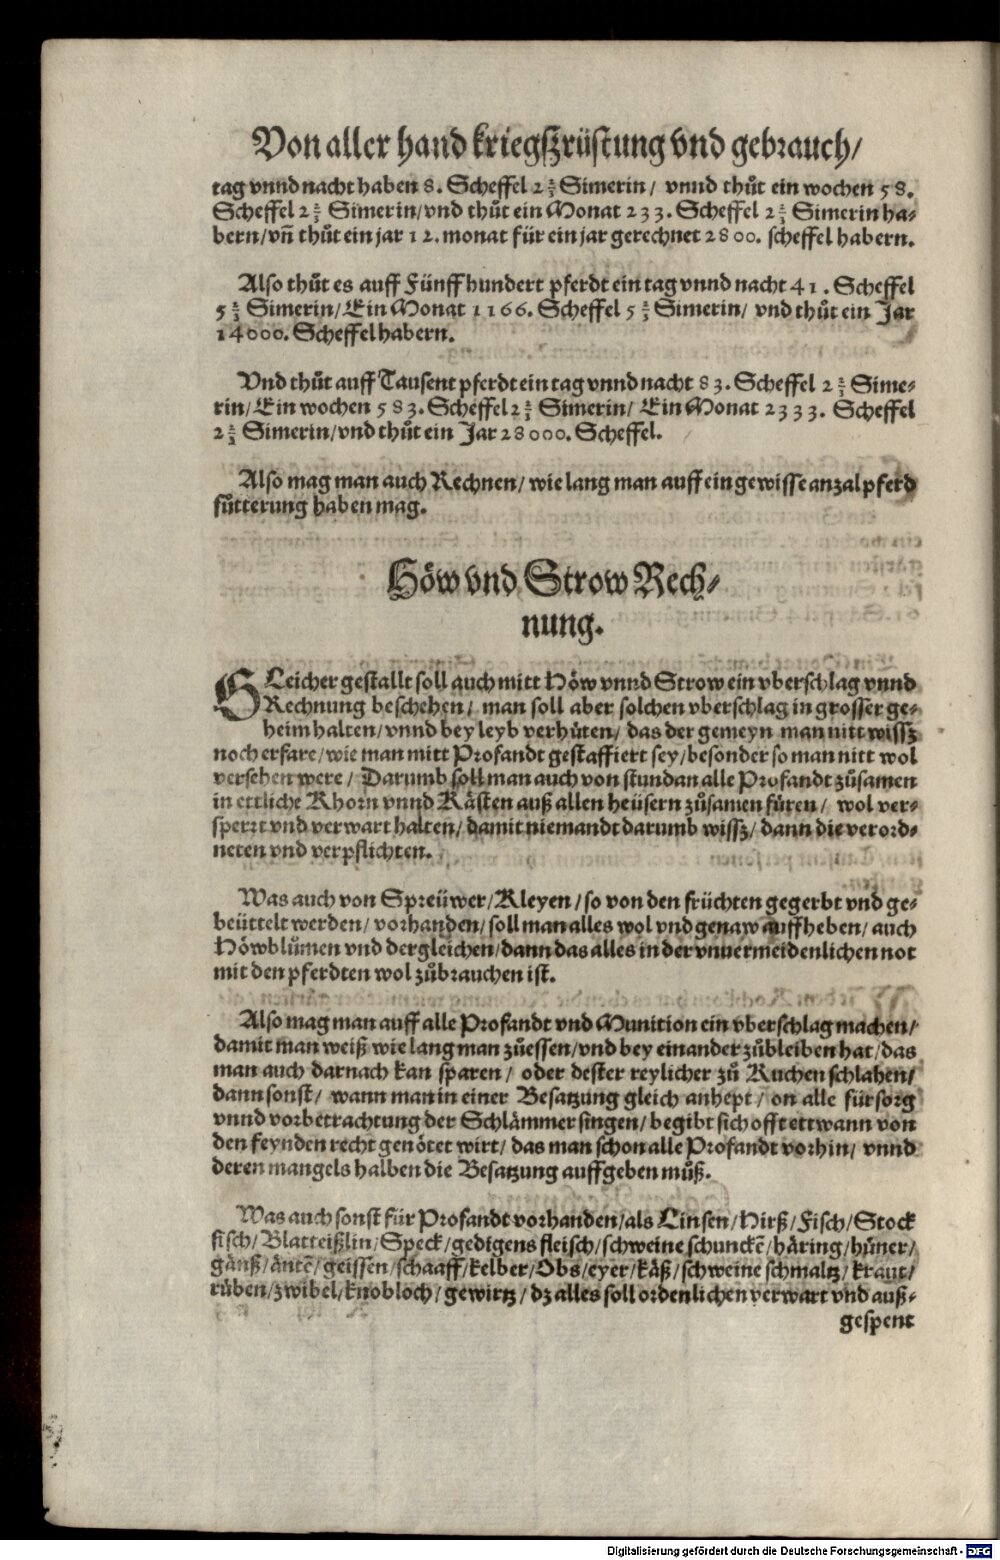 Von aller hand kriegßrüstung vnd gebrauch/
tag vnnd nacht haben 8. Scheffel 2⅔ Simerin/ vnnd thůt ein wochen 58.
Scheffel 2⅔ Simerin/vnd thůt ein Monat 233. Scheffel 2⅔ Simerin ha-
bern/vñ thůt ein jar 12. monat für ein jar gerechnet 2800. scheffel habern.
Also thůt es auff Fünffhundert pferdt ein tag vnnd nacht 41. Scheffel
5⅓ Simerin/Ein Monat 1166. Scheffel 5⅓ Simerin/ vnd thůt ein Jar
14000. Scheffel habern.
Vnd thůt auff Tausent pferdt ein tag vnnd nacht 83. Scheffel 2⅔ Sime-
rin/Ein wochen 583. Scheffel 2⅔ Simerin/ Ein Monat 2333. Scheffel
2⅔ Simerin/vnd thůt ein Jar 28000. Scheffel.
Also mag man auch Rechnen/ wie lang man auff ein gewisse anzal pferd
fůtterung haben mag.
Höw vnd Strow Rech-
nung.
GLeicher gestallt soll auch mitt Höw vnnd Strow ein vberschlag vnnd
Rechnung beschehen/ man soll aber solchen vberschlag in grosser ge-
heim halten/vnnd bey leyb verhüten/ das der gemeyn man nitt wissz
noch erfare/wie man mitt Profandt gestaffiert sey/besonder so man nitt wol
versehen were/ Darumb soll man auch von stundan alle Profandt zůsamen
in ettliche Khorn vnnd Kästen auß allen heüsern zůsamen füren/ wol ver-
sperrt vnd verwart halten/damit niemandt darumb wissz/dann die verord-
neten vnd verpflichten.
Was auch von Spreüwer/Kleyen/so von den früchten gegerbt vnd ge-
beüttelt werden/vorhanden/soll man alles wol vnd genaw auffheben/auch
Höwblůmen vnd dergleichen/dann das alles in der vnuermeidenlichen not
mit den pferdten wol zůbrauchen ist.
Also mag man auff alle Profandt vnd Munition ein vberschlag machen/
damit man weiß wie lang man zůessen/vnd bey einander zůbleiben hat/das
man auch darnach kan sparen/ oder dester reylicher zů Kuchen schlahen/
dann sonst/ wann man in einer Besatzung gleich anhept/ on alle fürsorg
vnnd vorbetrachtung der Schlämmer singen/begibt sich offt ettwann von
den feynden recht genötet wirt/das man schon alle Profandt vorhin/ vnnd
deren mangels halben die Besatzung auffgeben můß.
Was auch sonst für Profandt vorhanden/als Linsen/Hirß/Fisch/Stock
fisch/Blatteißlin/Speck/gedigens fleisch/schweine schunckē/häring/hüner/
gänß/äntē/geissen/schaaff/kelber/Obs/eyer/käß/schweine schmaltz/kraut/
rüben/zwibel/knobloch/gewirtz/dz alles soll ordenlichen verwart vnd auß-
gespent
Digitalisierung gefördert durch die Deutsche Forschungsgemeinschaft - DFG